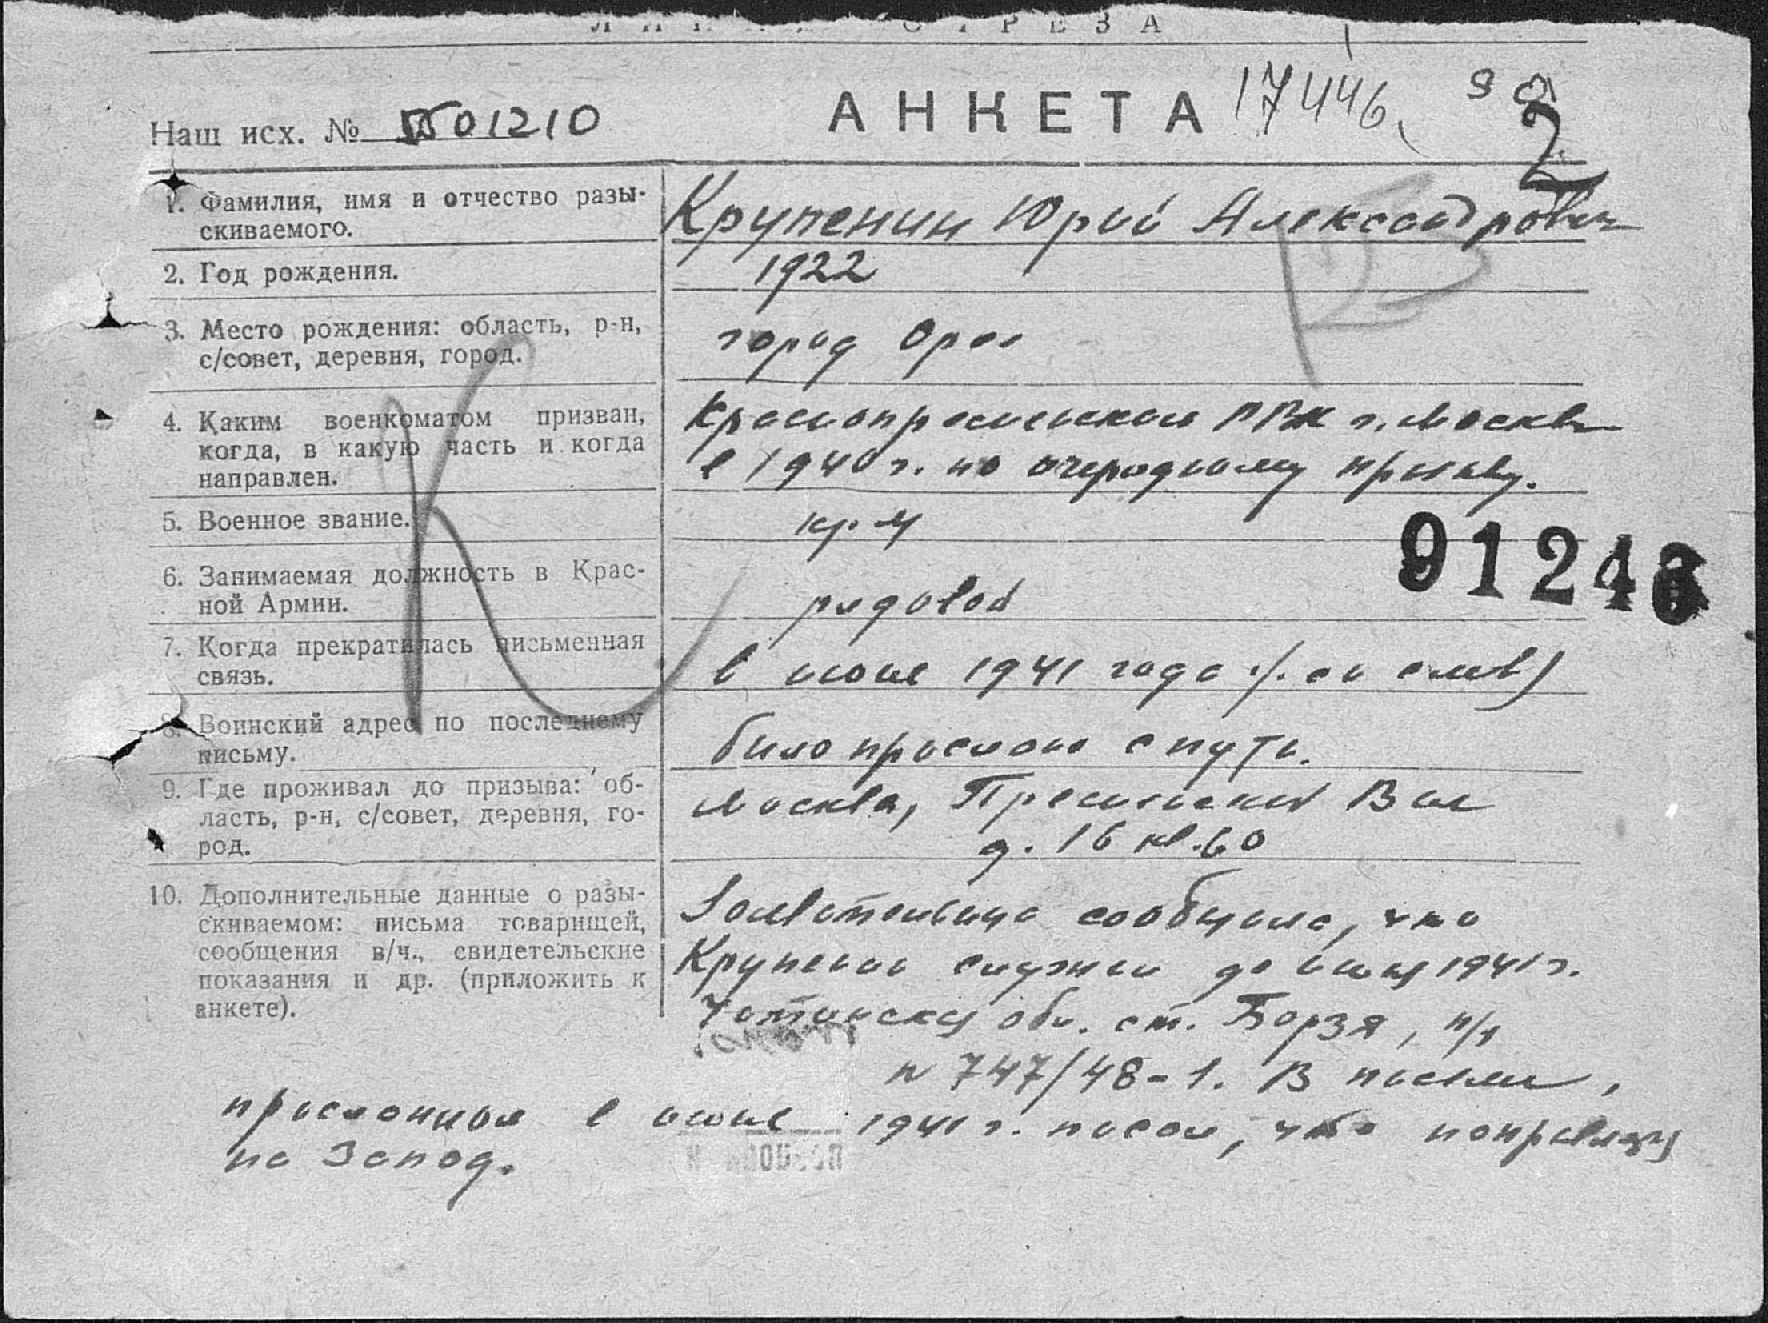 ЛИНИЯ ОТРЕЗА
Наш исх. № 01210
АНКЕТА 17446
2
1. Фамилия, имя и отчество разы-
скиваемого.
Крупенин Юрий Александрович
2. Год рождения.
1922
3. Место рождения: область, р-н,
с/совет, деревня, город.
город Орел
4. Каким военкоматом призван,
когда, в какую часть и когда
направлен.
Краснопресненским РВК г. Москвы
в 1940 г. по очередному призыву.
5. Военное звание.
кр-ц
91243
6. Занимаемая должность в Крас-
ной Армии.
рядовой
7. Когда прекратилась письменная
связь.
в июне 1941 года (со слов)
8. Воинский адрес по последнему
письму.
было прислано с пути.
9. Где проживал до призыва: об-
ласть, р-н, с/совет, деревня, го-
род.
Москва, Пресненский Вал
д. 16 кв. 60
10. Дополнительные данные о разы-
скиваемом: письма товарищей,
сообщения в/ч., свидетельские
показания и др. (приложить к
анкете).
Заявительница сообщила, что
Крупенин служил до 1941 г.
Читинская обл. ст. Борзя, п/я
№ 747/48-1. В письме,
присланном в июне 1941 г. писал, что направляют
на Запад.